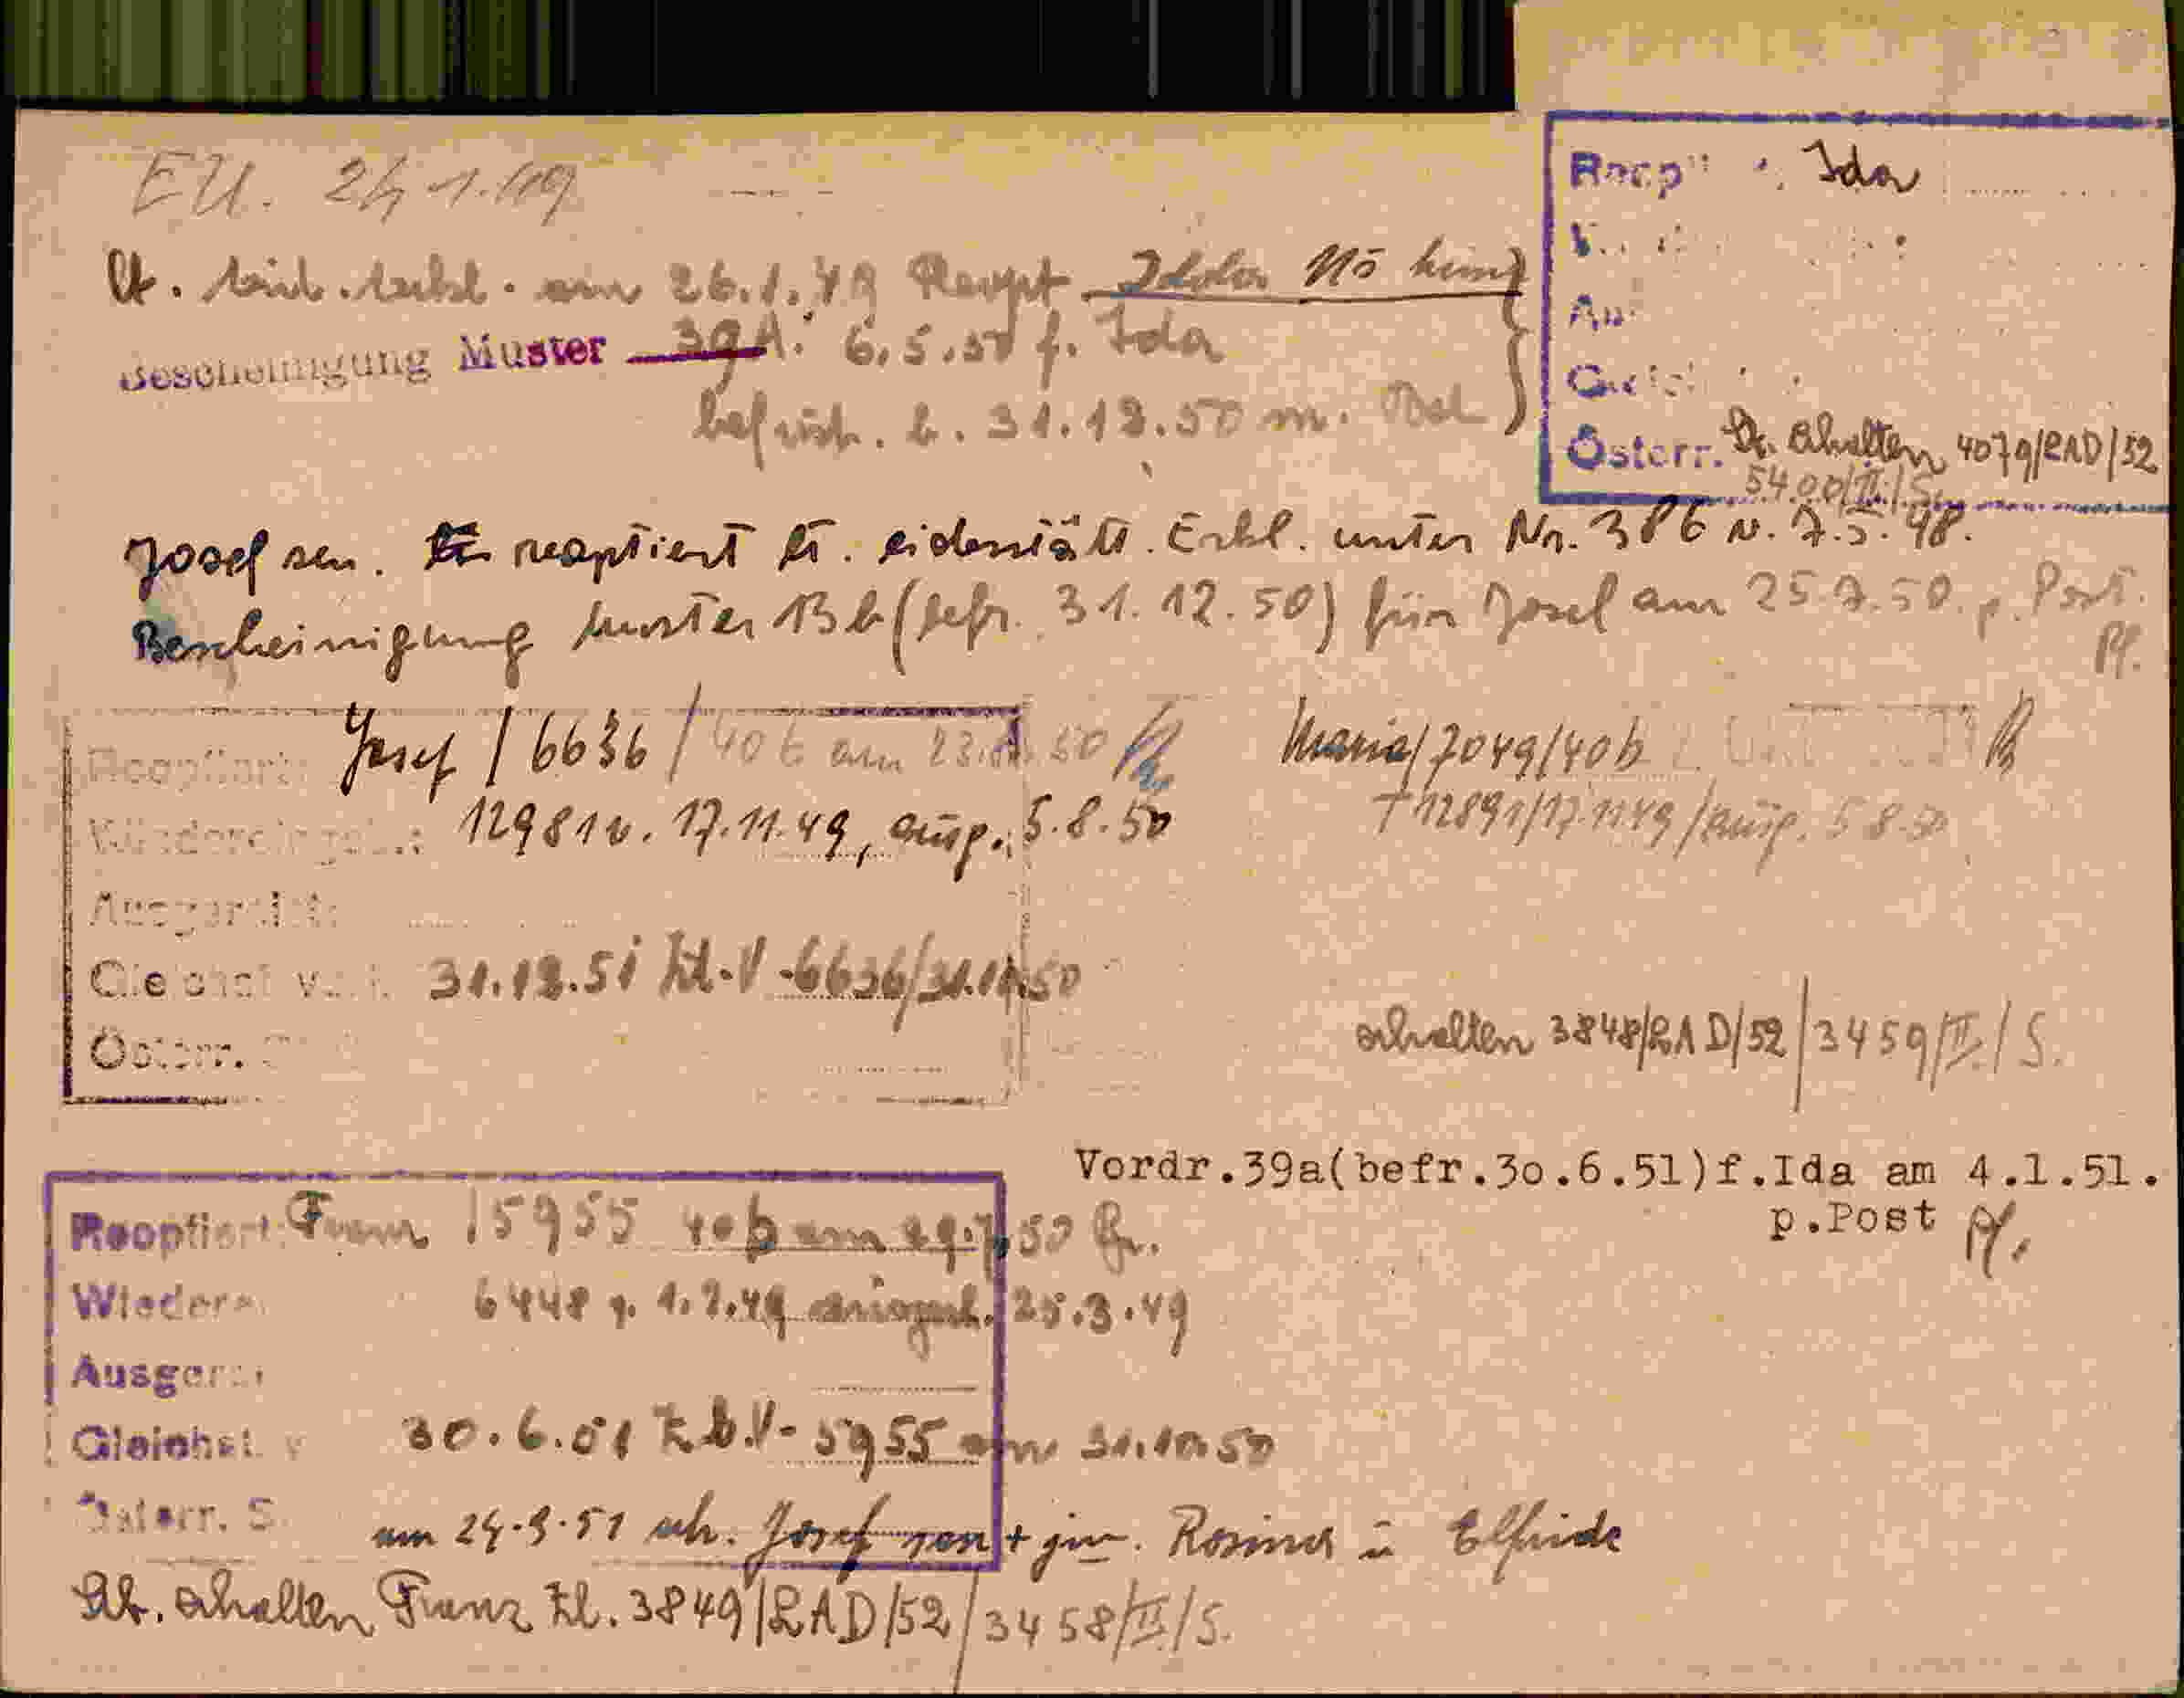 EU. 24.1.49
Lt. eid. Erkl. am 26.1.49 Reopt
Bescheinigung Muster 39A: 6.5.50 f. Ida
befrist. b. 31.12.50 m.
Reopt: Ida
Österr. St. erhalten 4079/LAD/52
5400/II/S.
Josef sen. reoptiert lt. eidesstattl. Erkl. unter Nr. 386 v. 7.5.48.
Bescheinigung Muster 13b (befr. 31.12.50) für Josef am 25.7.50. p. Post.
Pf.
Reoptiert: Josef / 6636 / 40b am 50
Wiedereingeb.: 12981 v. 17.11.49, ausg. 5.8.50
Maria/7049/40b
+ 12891/17.11.49/ausg. 5.8.50
Ausgereist:
Gleichst v. 31.12.51 Zl. V-6636/31.10.50
Österr.
erhalten 3848/LAD/52/3459/II./S.
Vordr.39a(befr.30.6.51)f.Ida am 4.1.51.
p.Post Pf.
Reoptiert: Franz 15955 40b am 29.7.50
Wieder 6448 v. 1.2.49 25.3.49
Ausger
Gleichst. v 30.6.51 Z.b.V-5955 am 31.10.50
Österr. S. am 24.9.51 erh. Josef sen + jun. Rosina u Elfride
Stb. erhalten Franz Zl. 3849/LAD/52/3458/II/S.